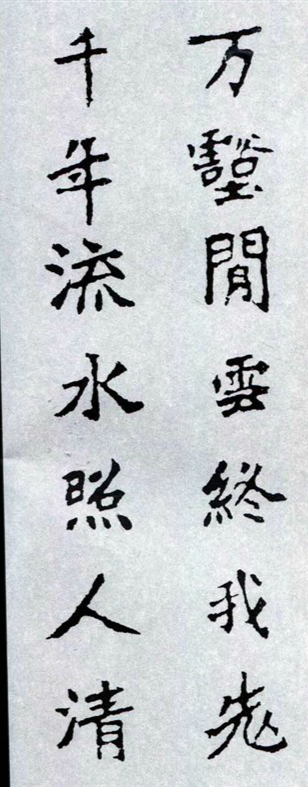 万壑閒雲終我老
千年流水照人清